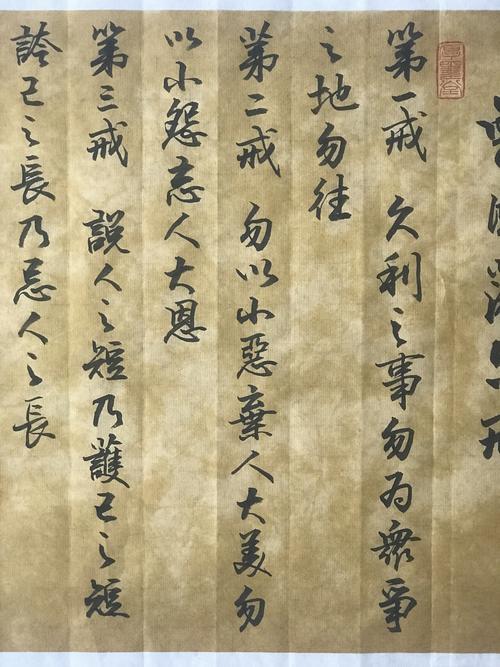 第一戒 久利之事勿为眾爭
之地勿往
第二戒 勿以小惡棄人大美勿
以小怨忘人大恩
第三戒 說人之短乃護己之短
誇己之長乃忌人之長